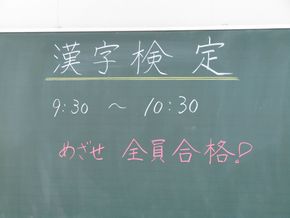 漢字検定
9:30 ～ 10:30
めざせ 全員合格!